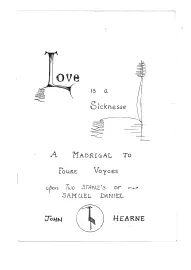 Love
is a
Sicknesse
A Madrigal to
Foure Voyces
upon Two Stanz's of
Samuel Daniel
John Hearne